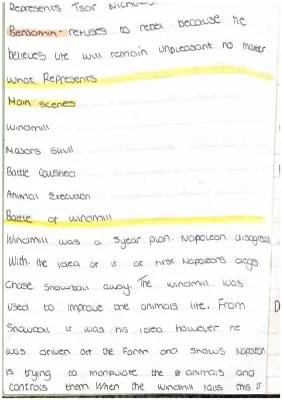 Represents Tsar Nicholas
Benjamin - refuses to rebel because he
believes life will remain unpleasant no matter
what Represents
Main scenes
Windmill
Majors Skull
Battle Cowshed
Animal Execution
Battle of windmill
Windmill was a 5year plan. Napoleon disagrees
With the idea of it at first. Napoleons dogs
chase snowball away. The windmill was
used to improve the animals life. From
Snowball it was his idea. However he
was driven off the farm and shows Napoleon
is trying to manipulate the animals and
controls them. When the windmill falls this is